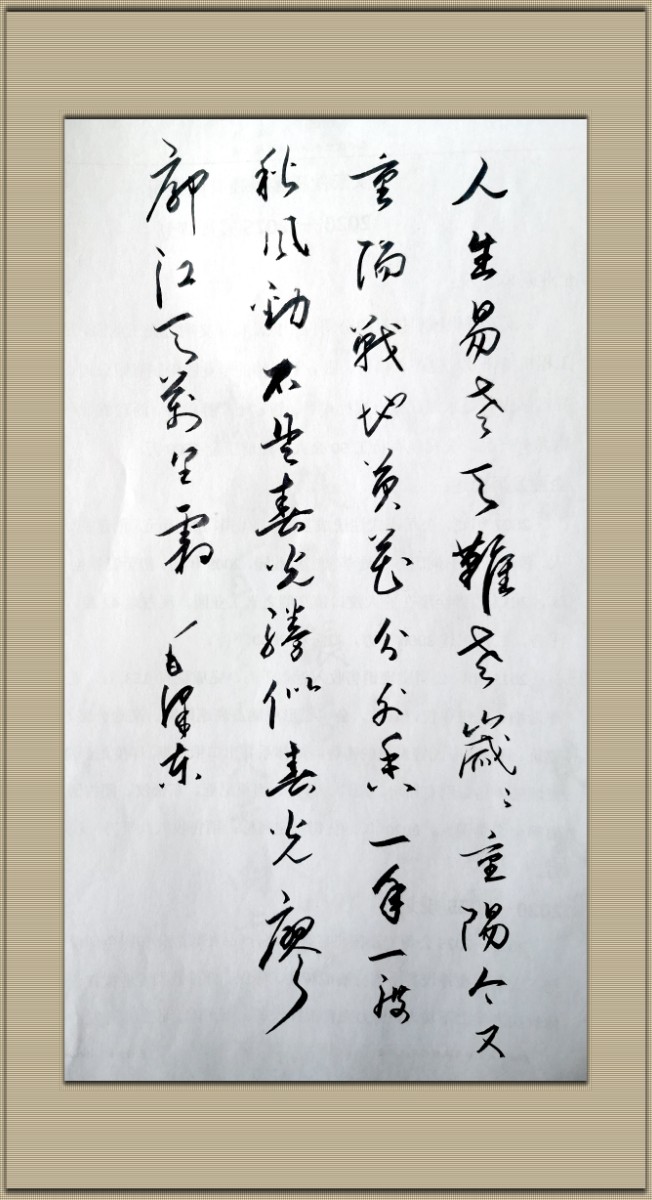 人生易老天難老歲〻重陽今又
重陽戦地黄花分外香一年一度
秋風勁不是春光勝似春光廖
廓江天萬里霜 毛澤东